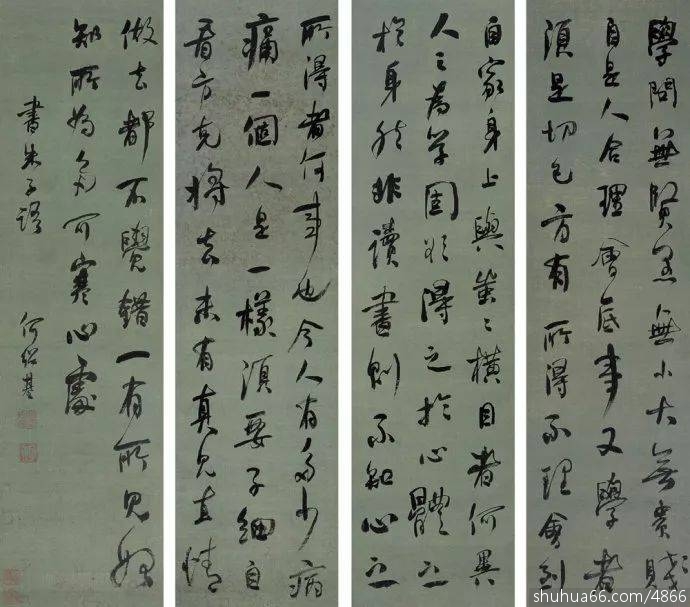 學問無賢愚無小大無貴賤
自是人合理會底事又學者
須是切己方有所得不理會到
自家身上與蚩〻橫目者何異
人之為學固欲得之於心體之
於身然非讀書則不知心之
所得者何事也今人有多少病
痛一個人是一樣須要子細自
看方克將去未有真見直情
做去都不覺錯一有所見始
知所為多可寒心處
書朱子語
何紹基
shuhua66.com/4866